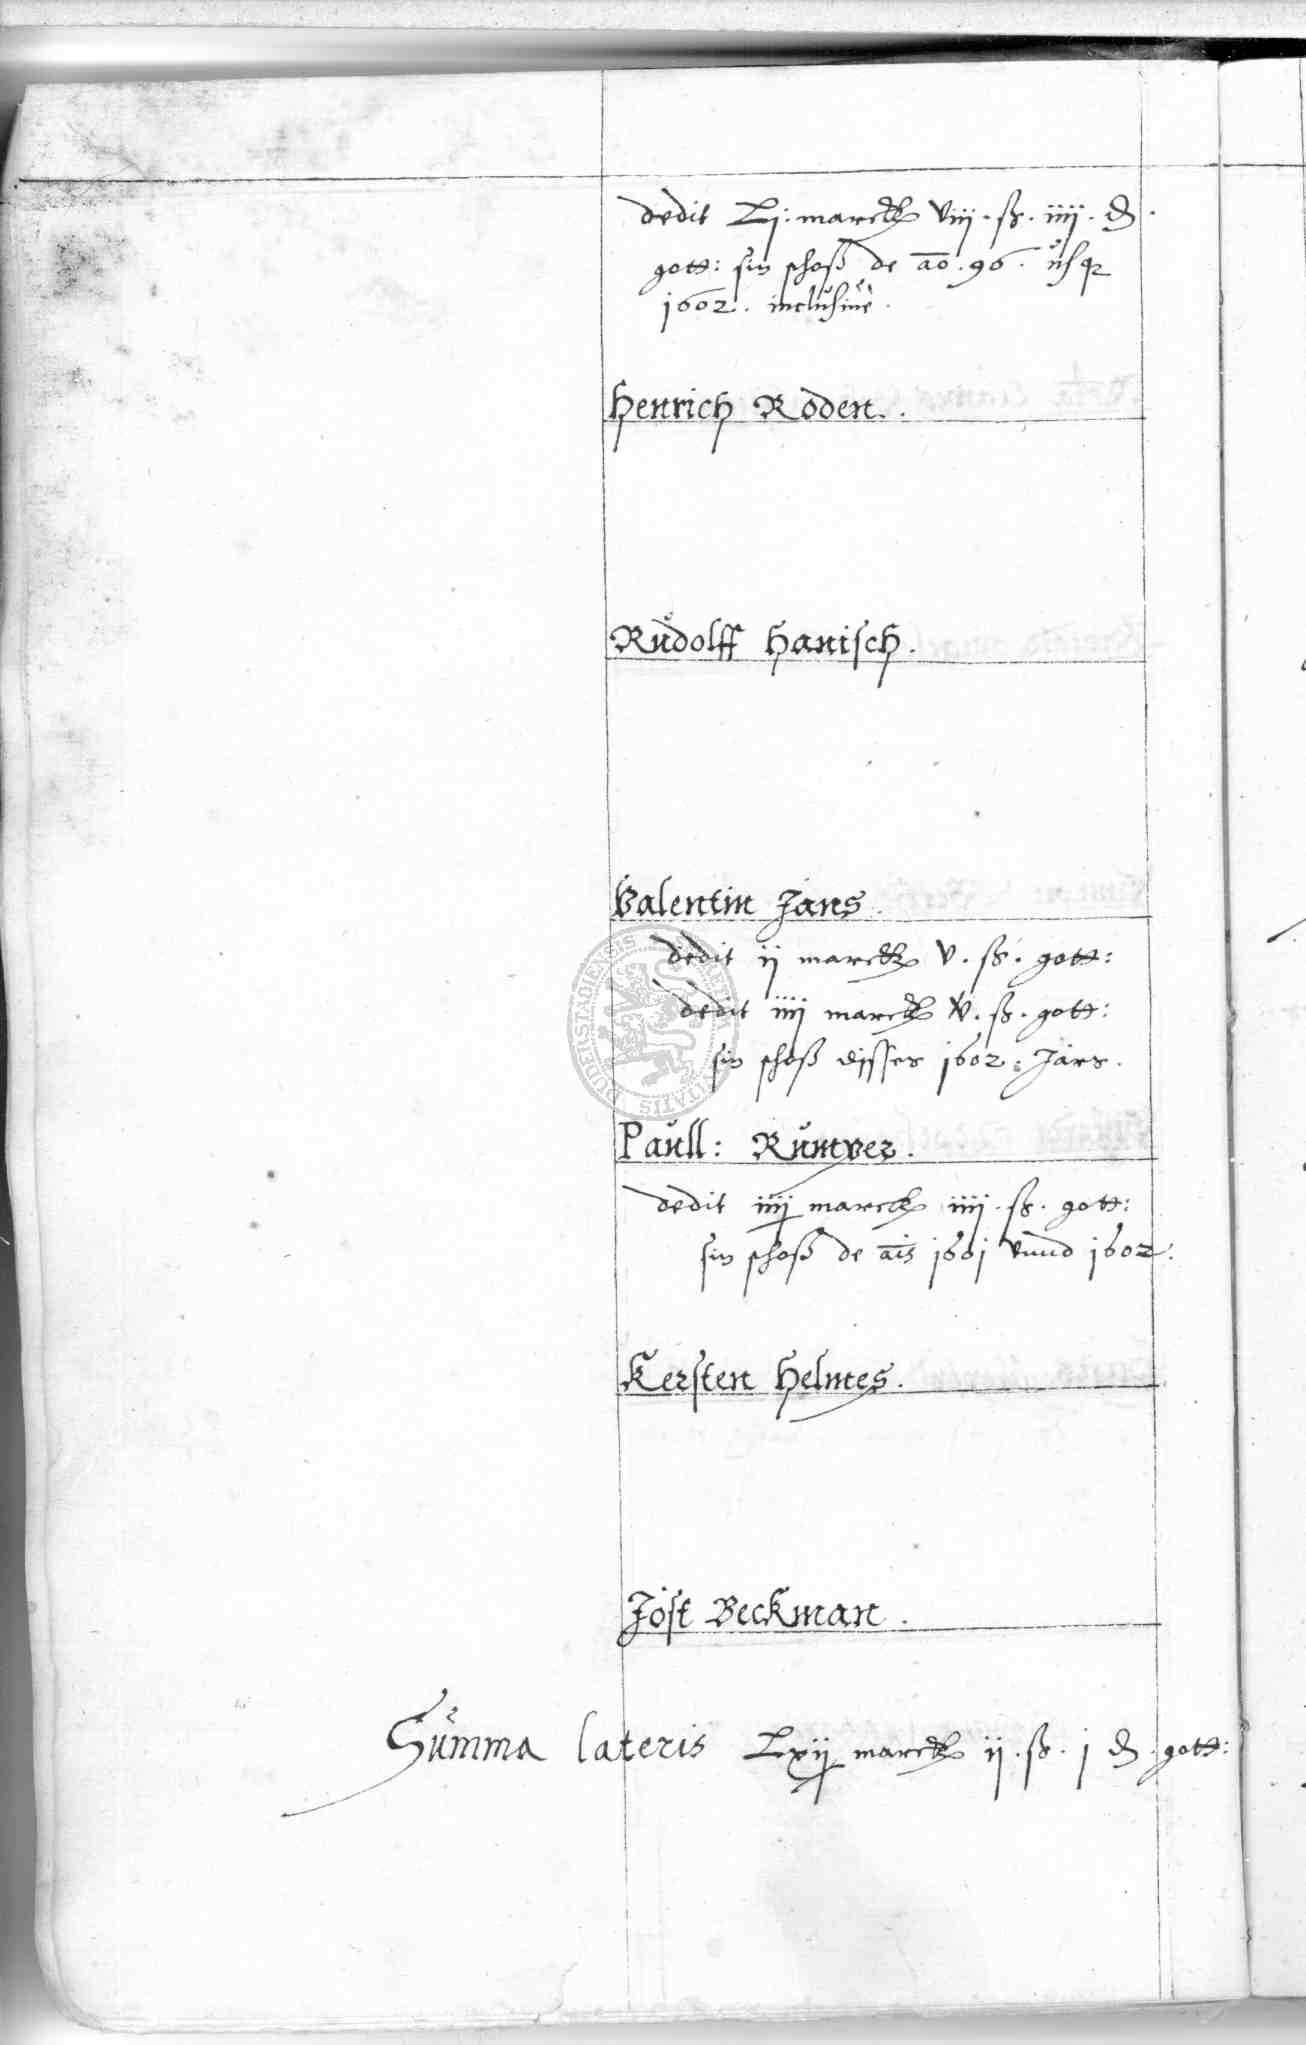 dedit Lj. marck viij. ß. iiij. ₰.
gott: sin schoß de ao. 96. usq
1602. inclusive.
Henrich Roden.
Rudolff Hanisch.
Valentin Jans.
dedit ij marck v. ß. gott:
dedit iiij marck v. ß. gott:
sin schoß disses 1602. Jars.
Paull: Rumver.
dedit iiij marck iiij. ß. gott:
sin schoß de ais 1601 vnnd 1602.
Kersten Helmes.
Jost Beckman.
Summa lateris Lxij marck ij. ß. j ₰. gott: